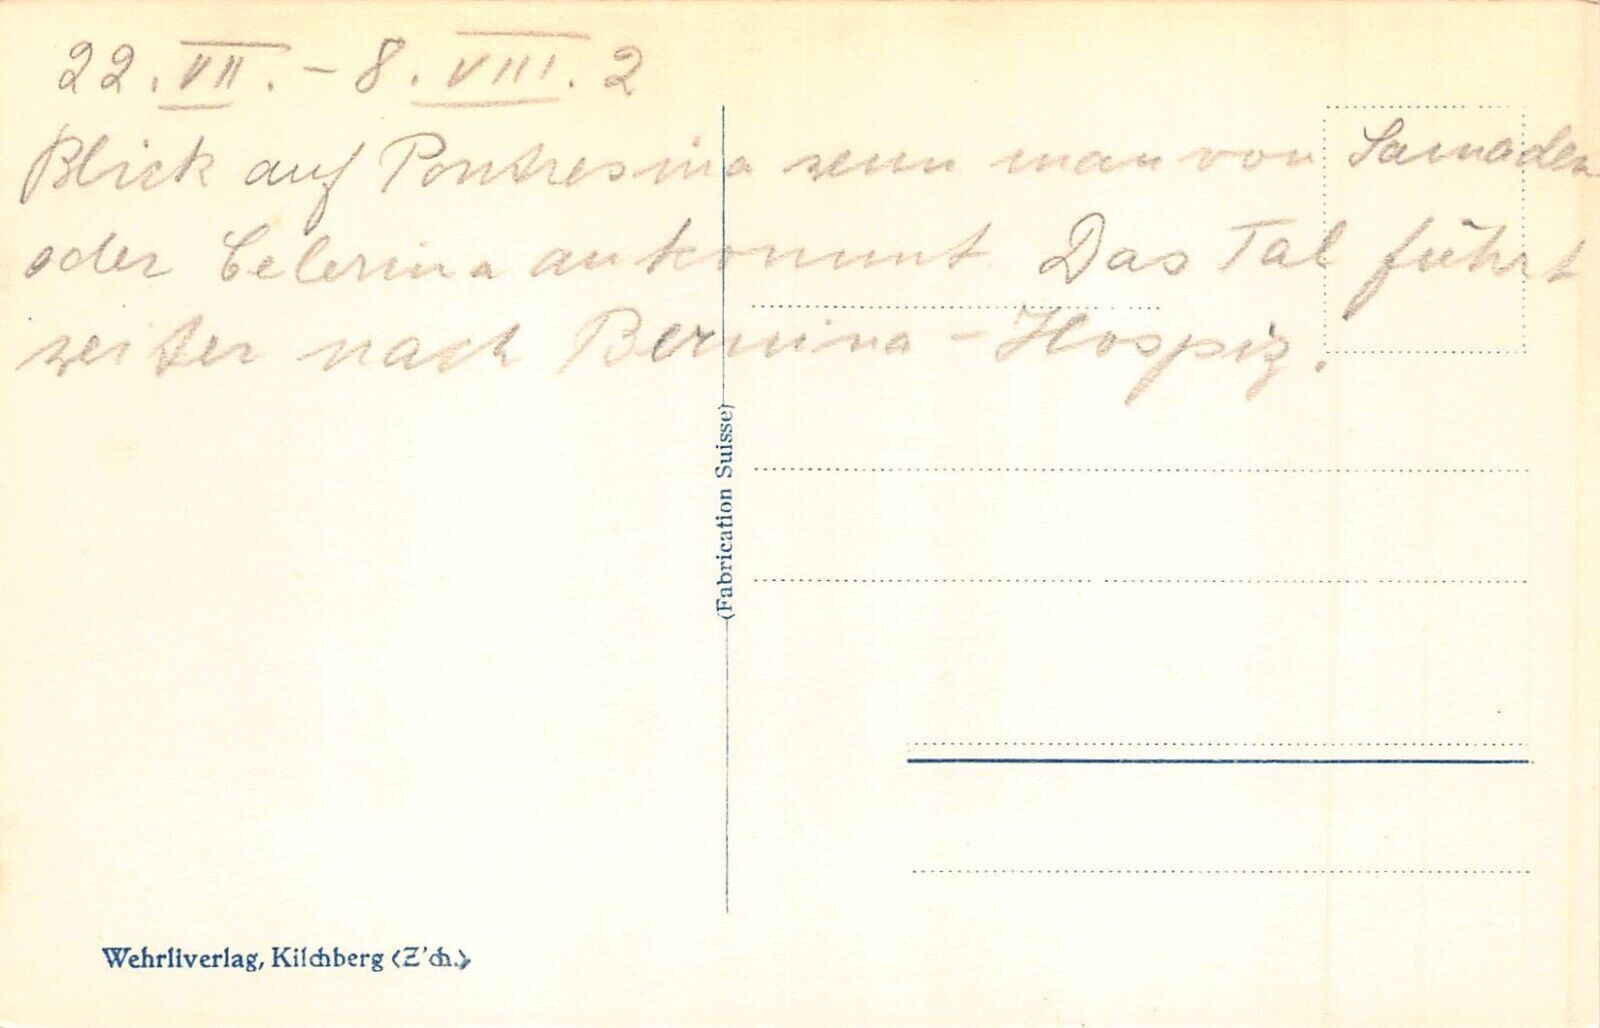 22. VII. - 8. VIII. 2
Blick auf Pontresina wenn man von Samaden
oder Celerina ankommt. Das Tal führt
weiter nach Bernina - Hospiz.
(Fabrication Suisse)
Wehrliverlag, Kilchberg (Z'ch.)